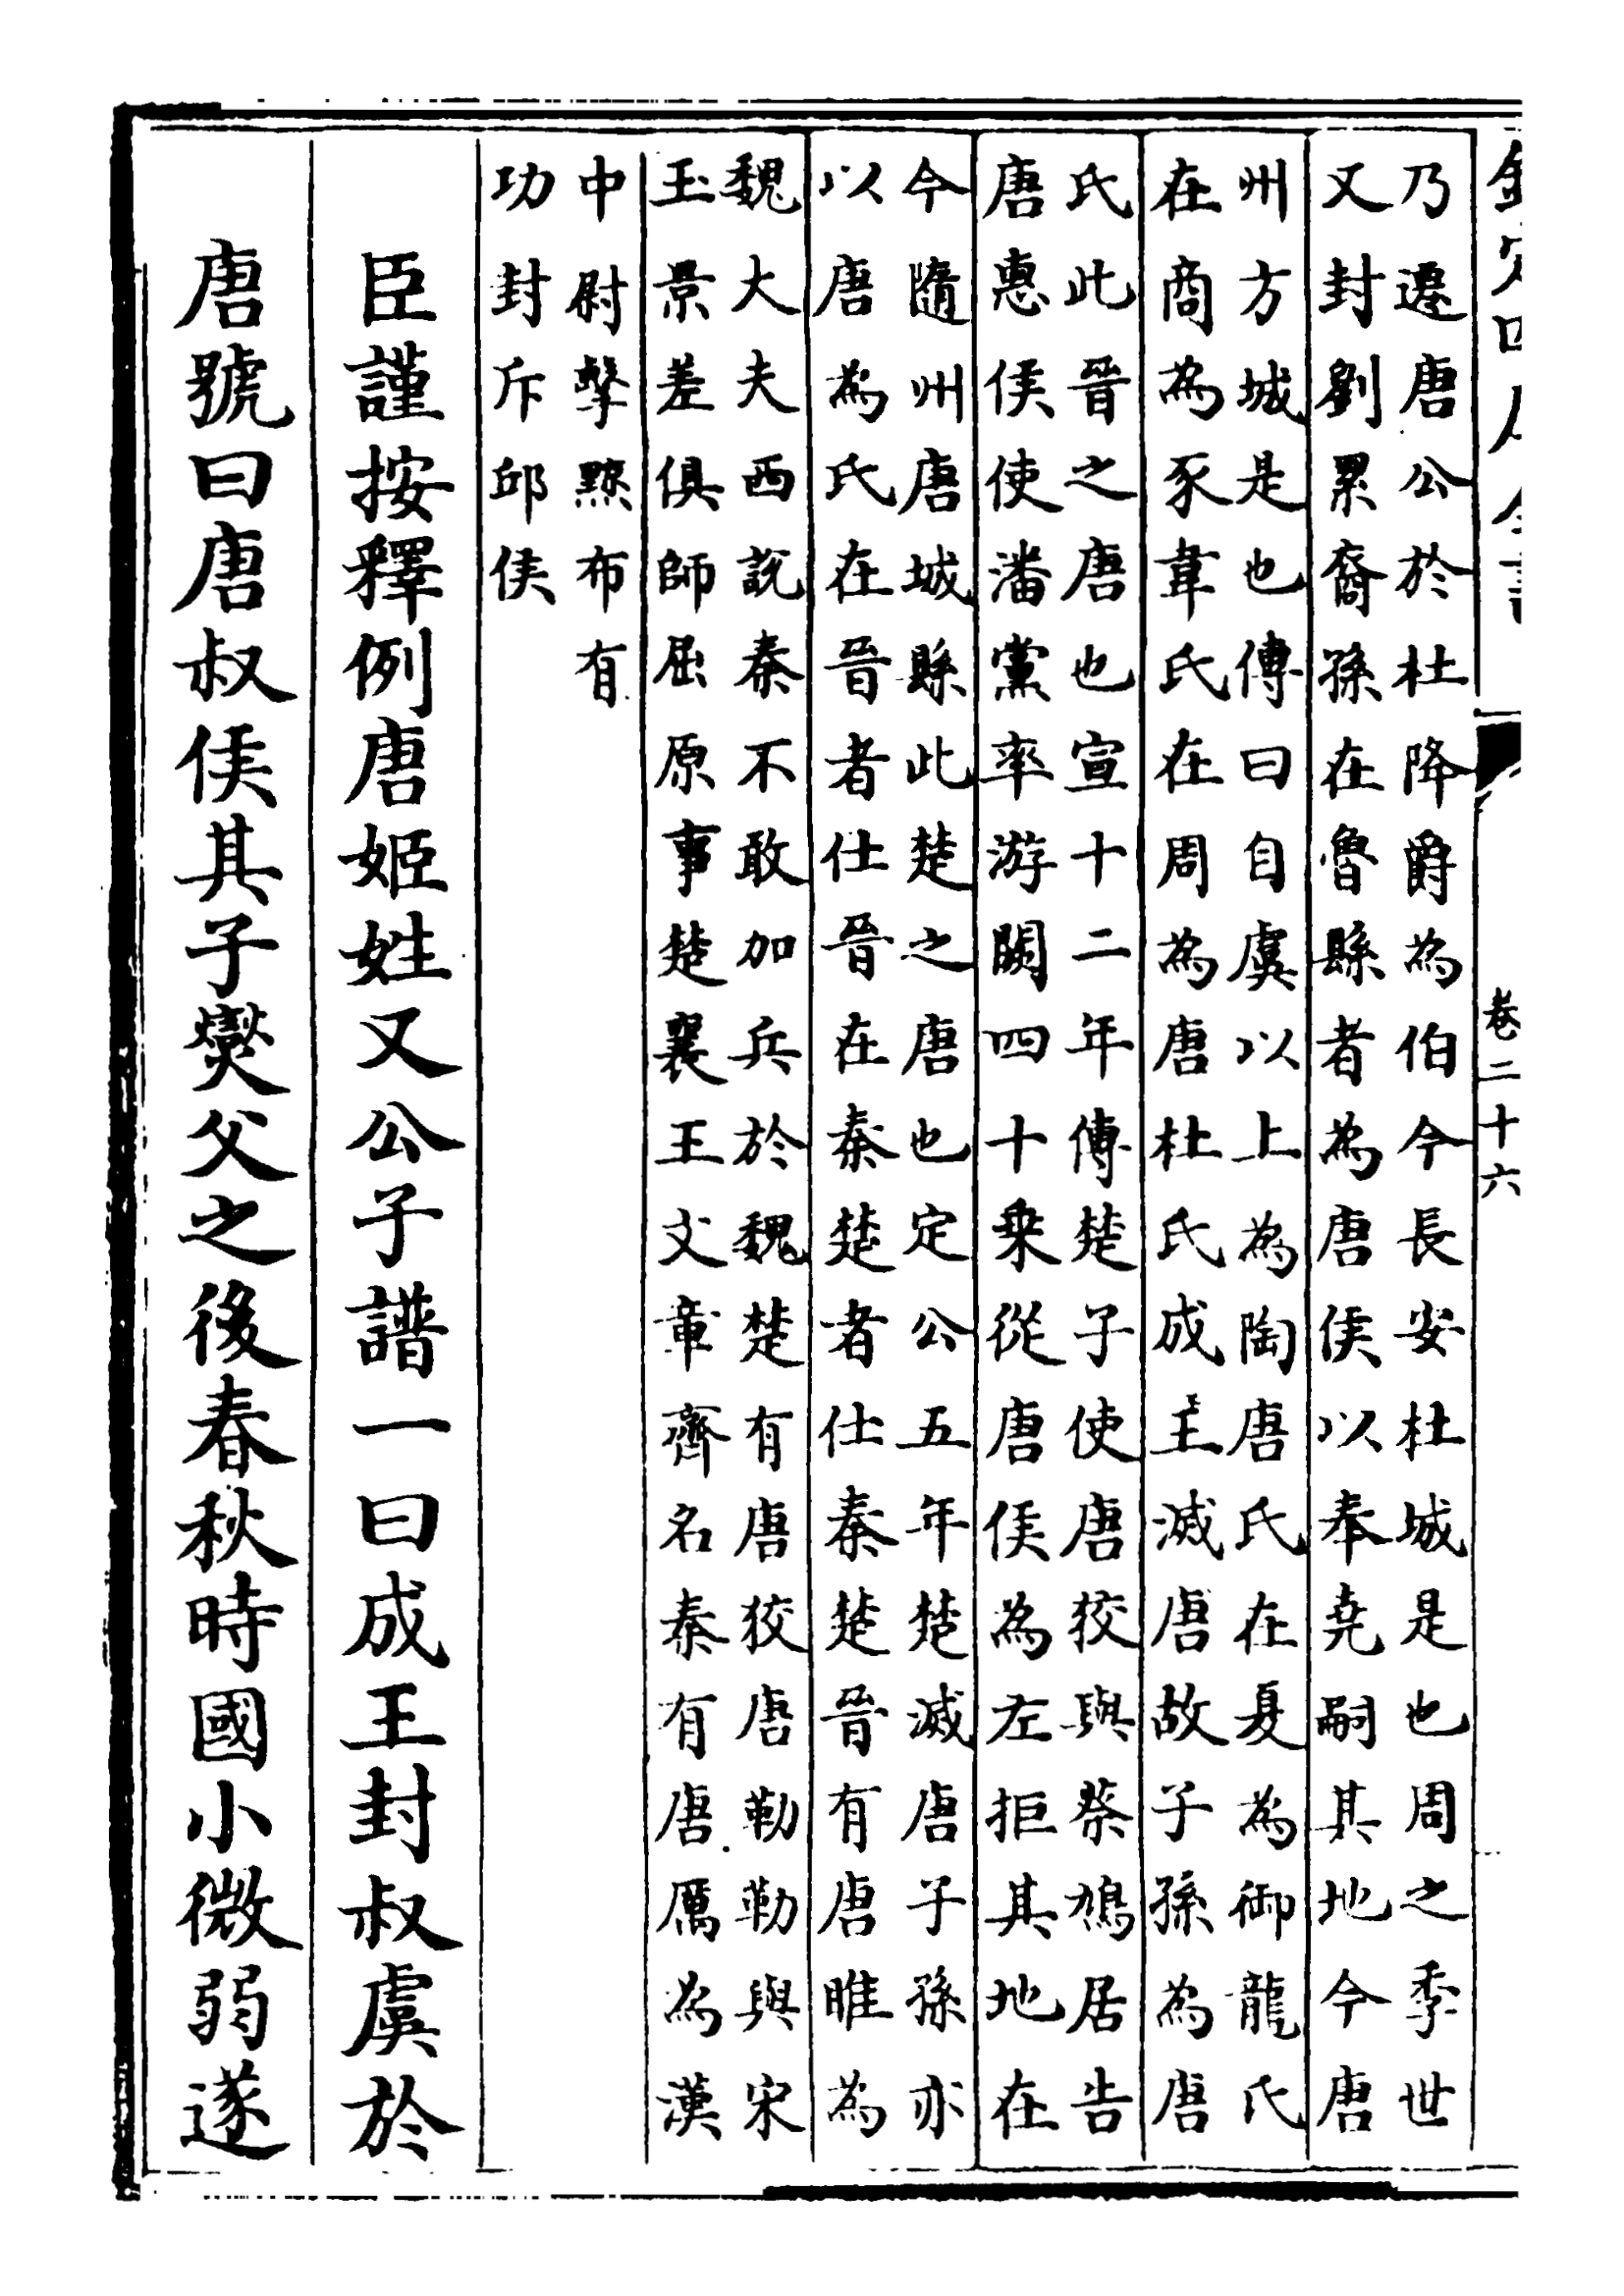 卷二十六
乃遷唐公於杜降爵為伯今長安杜城是也周之季世
又封劉累裔孫在魯縣者為唐侯以奉堯嗣其地今唐
州方城是也傳曰自虞以上為陶唐氏在夏為御龍氏
在商為豕韋氏在周為唐杜氏成王滅唐故子孫為唐
氏此晉之唐也宣十二年傳楚子使唐狡與蔡鳩居告
唐惠侯使潘黨率游闕四十乗從唐侯為左拒其地在
今隨州唐城縣此楚之唐也定公五年楚滅唐子孫亦
以唐為氏在晉者仕晉在秦楚者仕秦楚晉有唐睢為
魏大夫西說秦不敢加兵於魏楚有唐狡唐勒勒與宋
玉景差俱師屈原事楚襄王文章齊名秦有唐厲為漢
中尉擊黥布有
功封斥邱侯
臣謹按釋例唐姬姓又公子譜一曰成王封叔虞於
唐號曰唐叔侯其子燮父之後春秋時國小微弱遂